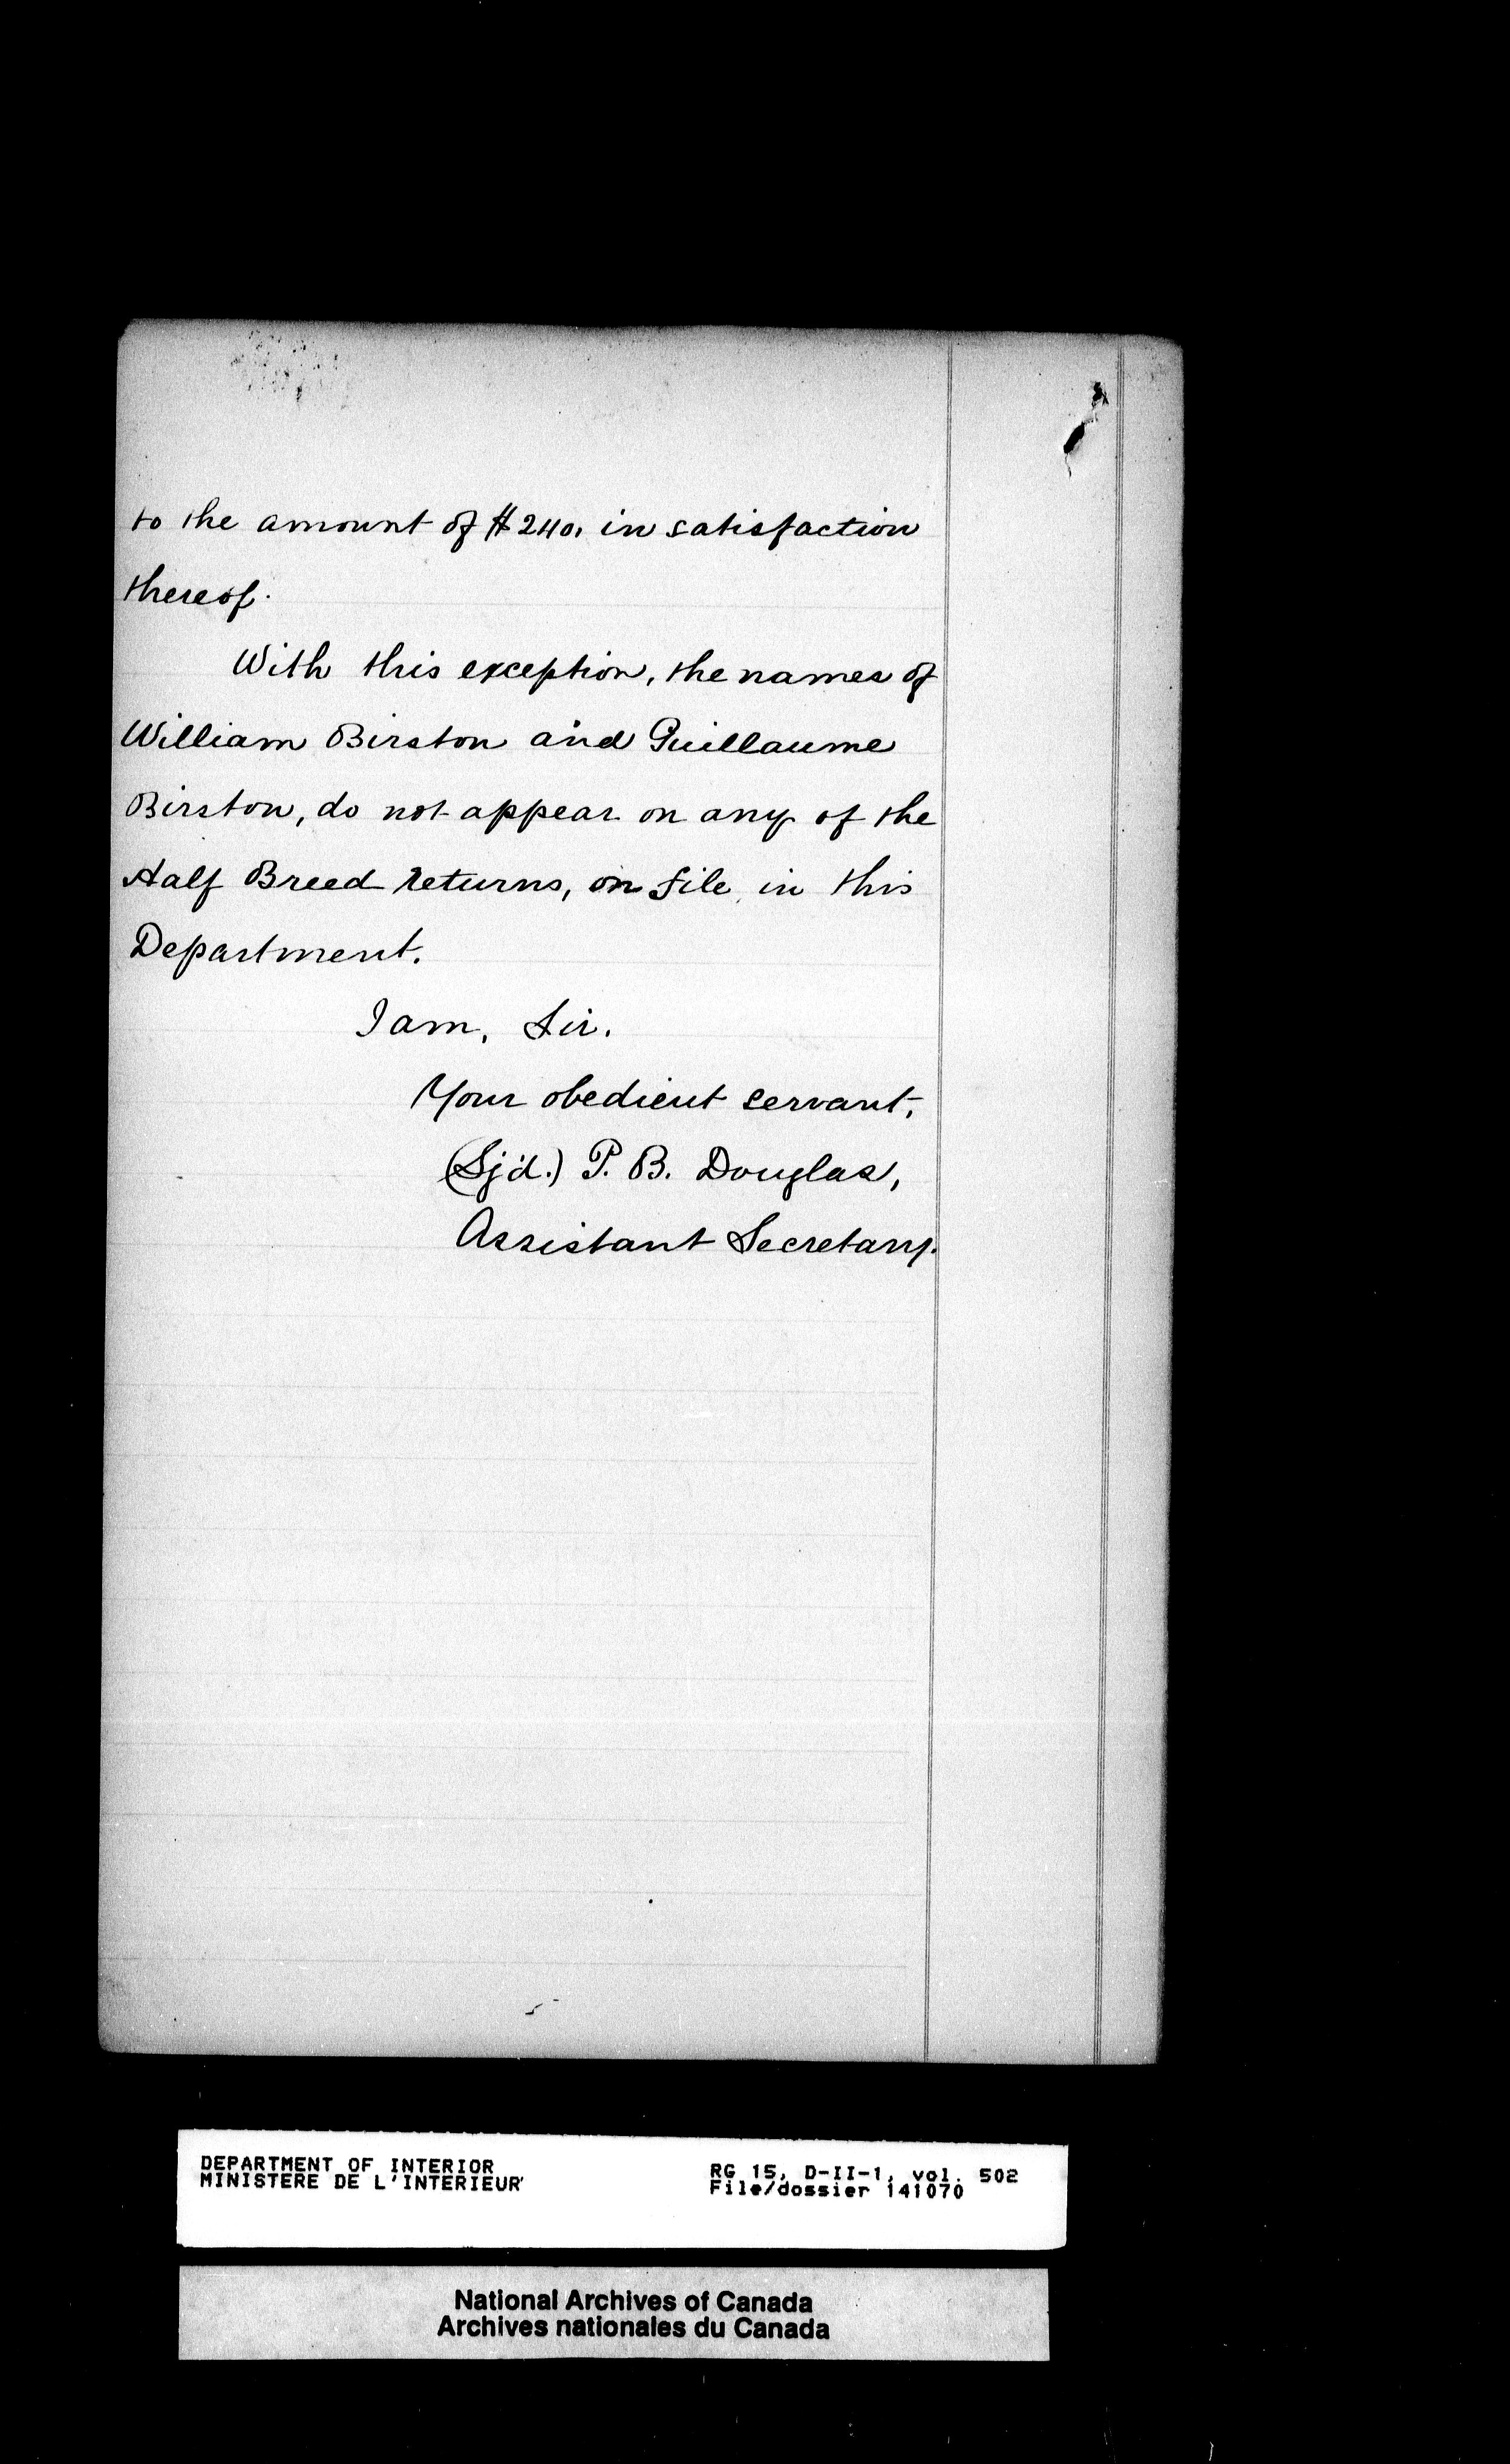 to the amount of $240. in satisfaction
thereof.
With this exception, the names of
William Birston and Guillaume
Birston, do not appear on any of the
Half Breed returns, on file, in this
Department.
I am, Sir.
Your obedient servant,
(Sj'd.) P. B. Douglas,
Assistant Secretary.
DEPARTMENT OF INTERIOR
MINISTERE DE L'INTERIEUR
RG 15, D-II-1, vol. 502
File/dossier 141070
National Archives of Canada
Archives nationales du Canada